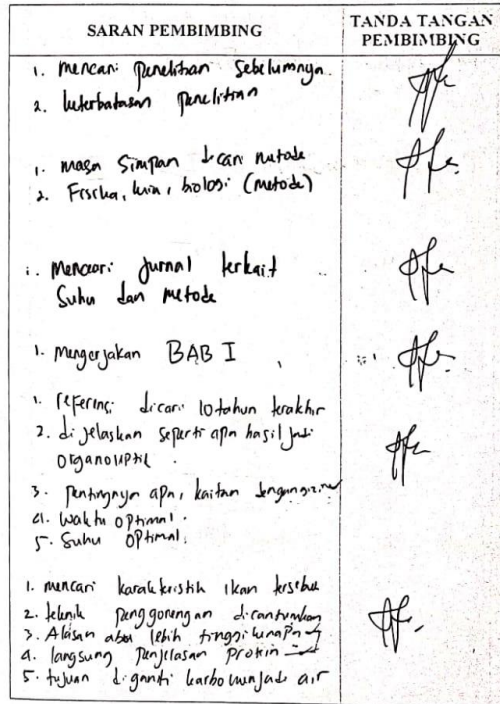 SARAN PEMBIMBING
TANDA TANGAN
PEMBIMBING
1. mencari penelitian sebelumnya.
2. keterbatasan penelitian
1. masa simpan dcari metode
2. Fisika, kimi, biologi (metode)
1. Mencari jurnal terkait
Suhu dan metode
1. Mengerjakan BAB I
1. referensi dicari 10 tahun terakhir
2. di jelaskan seperti apa hasil jadi
organoleptik.
3. Pentingnya apa, kaitan dengan gizi
4. Waktu optimal.
5. Suhu optimal.
1. mencari karakteristik ikan tersebut
2. teknik penggorengan dicantumkan
3. Alasan abu lebih tinggi
4. langsung penjelasan protein
5. tujuan diganti karbo menjadi air